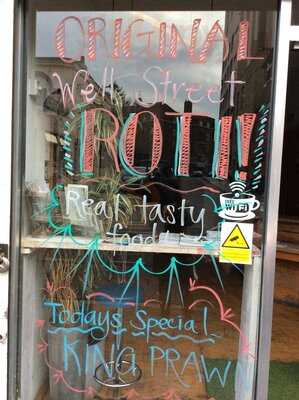 ORIGINAL
Well Street
ROTI!!
Real tasty
food
FREE
WiFi
Todays Special
KING PRAWN